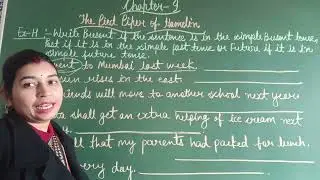 Chapter-2
The Pied Piper of Hamelin
Ex-H - Write Present if the sentence is in the simple Present tense,
Past if it is in the simple past tense or Future if it is in
simple future tense.
went to Mumbai last week.
rises in the east.
friends will move to another school next year
shall get an extra helping of ice cream next
all that my parents had packed for lunch.
every day.